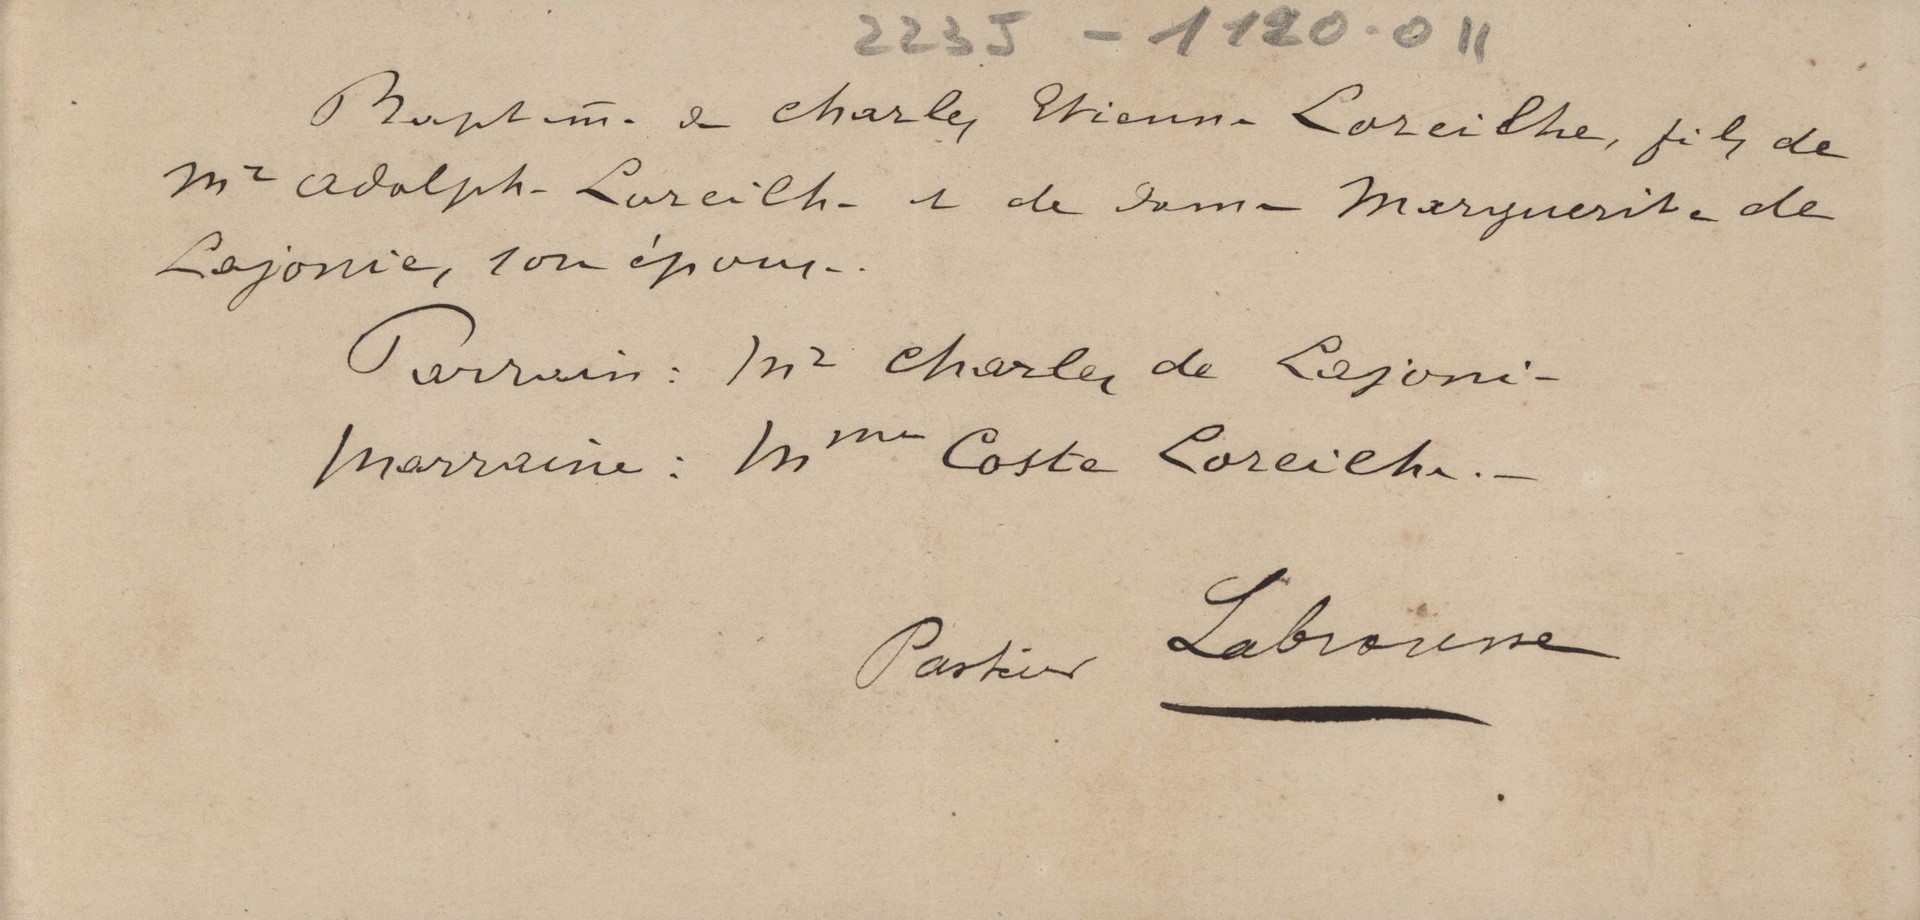 2235 - 1120.011
Baptême de Charles Etienne Loreilhe, fils de
Mr Adolphe Loreilhe et de dame Marguerite de
Lajonie, son épouse.
Parrain : Mr Charles de Lajonie
Marraine : Mme Coste Loreilhe. -
Pasteur Labrousse